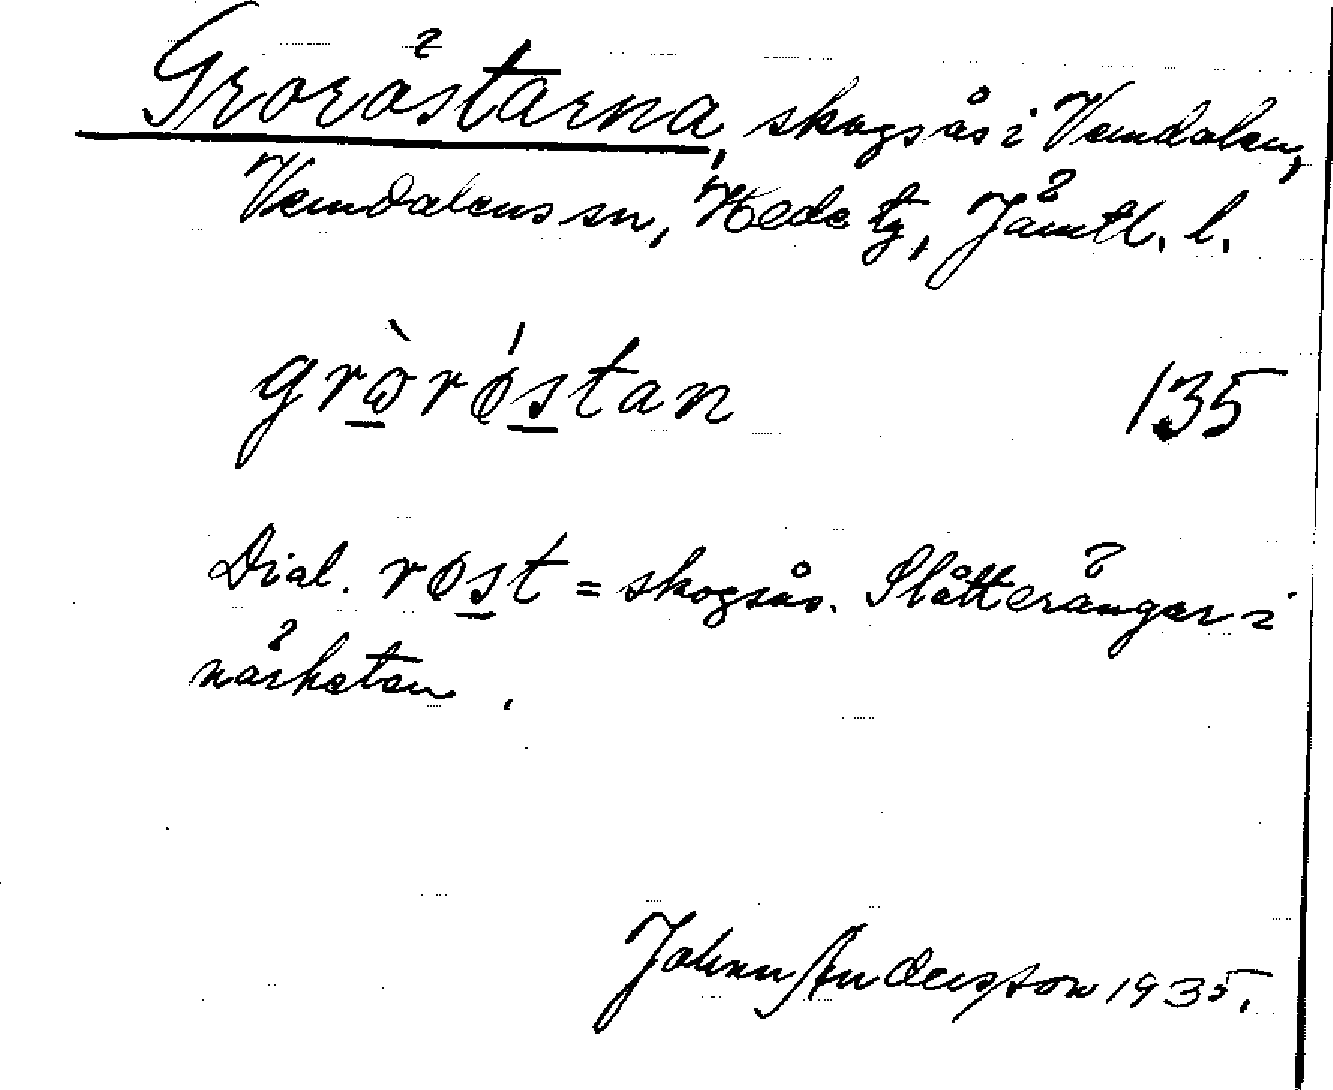 Grorästarna, skogsås i Vemdalen,
Vemdalens sn, Hede tg, Jämtl. l.
gròrǿstan 135
Dial. røst = skogsås. Slåtterängar i
närheten.
Johan Andersson 1935.